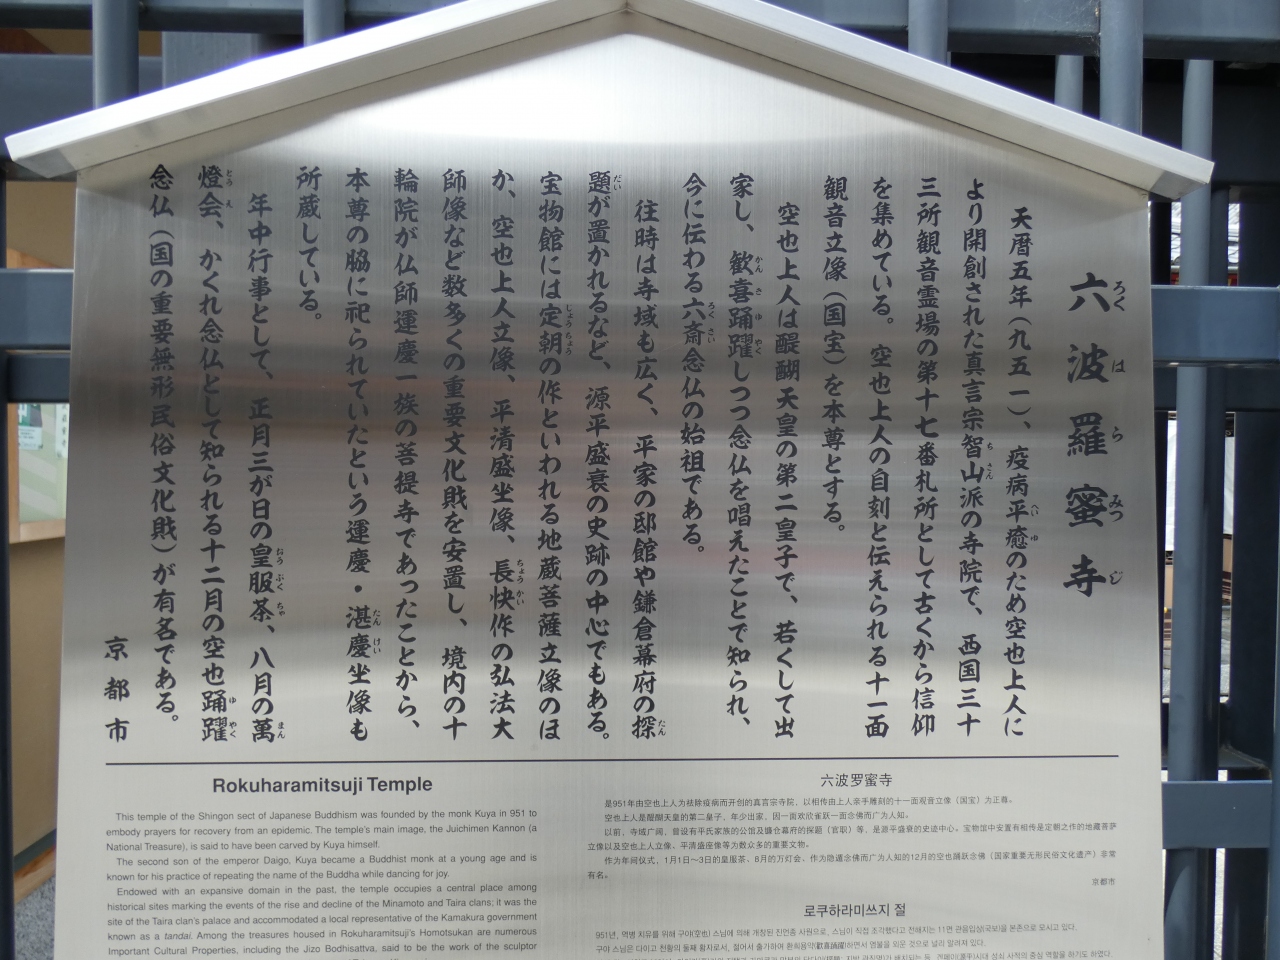 六波羅蜜寺
天暦五年（九五一）、疫病平癒のため空也上人に
より開創された真言宗智山派の寺院で、西国三十
三所観音霊場の第十七番札所として古くから信仰
を集めている。空也上人の自刻と伝えられる十一面
観音立像（国宝）を本尊とする。
空也上人は醍醐天皇の第二皇子で、若くして出
家し、歓喜踊躍しつつ念仏を唱えたことで知られ、
今に伝わる六斎念仏の始祖である。
往時は寺域も広く、平家の邸館や鎌倉幕府の探
題が置かれるなど、源平盛衰の史跡の中心でもある。
宝物館には定朝の作といわれる地蔵菩薩立像のほ
か、空也上人立像、平清盛坐像、長快作の弘法大
師像など数多くの重要文化財を安置し、境内の十
輪院が仏師運慶一族の菩提寺であったことから、
本尊の脇に祀られていたという運慶・湛慶坐像も
所蔵している。
年中行事として、正月三が日の皇服茶、八月の萬
燈会、かくれ念仏として知られる十二月の空也踊躍
念仏（国の重要無形民俗文化財）が有名である。
京都市
Rokuharamitsuji Temple
This temple of the Shingon sect of Japanese Buddhism was founded by the monk Kuya in 951 to
embody prayers for recovery from an epidemic. The temple's main image, the Juichimen Kannon (a
National Treasure), is said to have been carved by Kuya himself.
The second son of the emperor Daigo, Kuya became a Buddhist monk at a young age and is
known for his practice of repeating the name of the Buddha while dancing for joy.
Endowed with an expansive domain in the past, the temple occupies a central place among
historical sites marking the events of the rise and decline of the Minamoto and Taira clans; it was the
site of the Taira clan's palace and accommodated a local representative of the Kamakura government
known as a tandai. Among the treasures housed in Rokuharamitsuji's Homotsukan are numerous
Important Cultural Properties, including the Jizo Bodhisattva, said to be the work of the sculptor
六波罗蜜寺
是951年由空也上人为祛除疫病而开创的真言宗寺院，以相传由上人亲手雕刻的十一面观音立像（国宝）为正尊。
空也上人是醍醐天皇的第二皇子，年少出家，因一面欢欣雀跃一面念佛而广为人知。
以前，寺域广阔，曾设有平氏家族的公馆及镰仓幕府的探题（官职）等，是源平盛衰的史迹中心。宝物馆中安置有相传是定朝之作的地藏菩萨
立像以及空也上人立像、平清盛座像等为数众多的重要文物。
作为年间仪式，1月1日～3日的皇服茶、8月的万灯会、作为隐遁念佛而广为人知的12月的空也踊跃念佛（国家重要无形民俗文化遗产）非常
有名。
京都市
로쿠하라미쓰지 절
951년, 역병 치유를 위해 구야(空也) 스님에 의해 개창된 진언종 사원으로, 스님이 직접 조각했다고 전해지는 11면 관음입상(국보)을 본존으로 모시고 있다.
구야 스님은 다이고 천황의 둘째 황자로서, 젊어서 출가하여 환희용약(歓喜踊躍)하면서 염불을 외운 것으로 널리 알려져 있다.